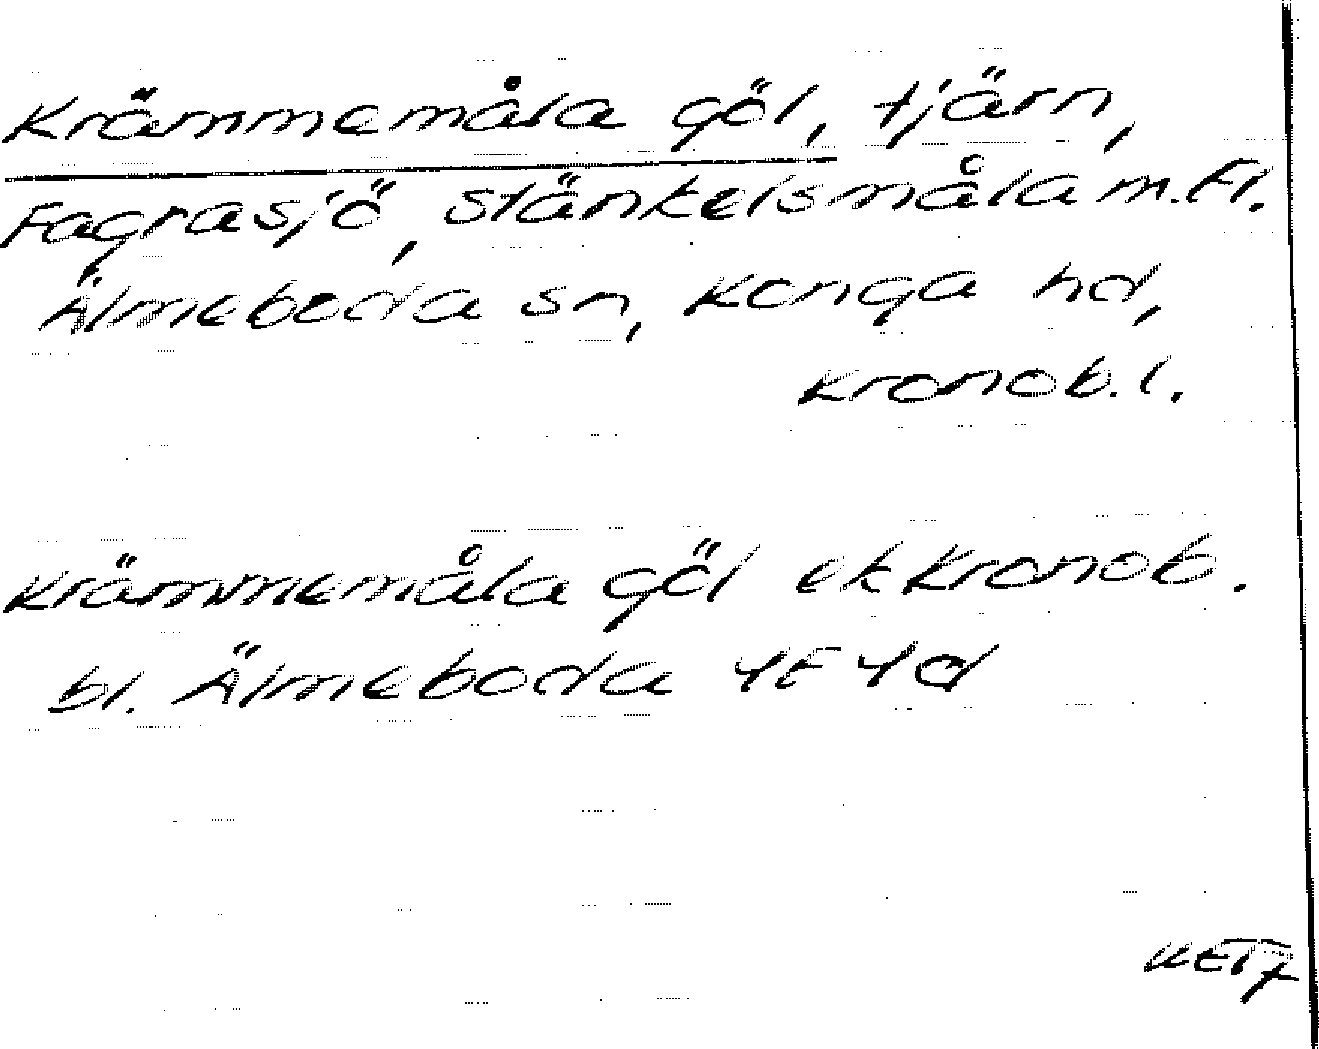 Krämmemåla göl, tjärn,
Fagrasjö, Stänkelsmåla m.fl.
Älmeboda sn, Konga hd,
Kronob.l.
Krämmemåla göl ek Kronob.
bl. Älmeboda 4E 4d